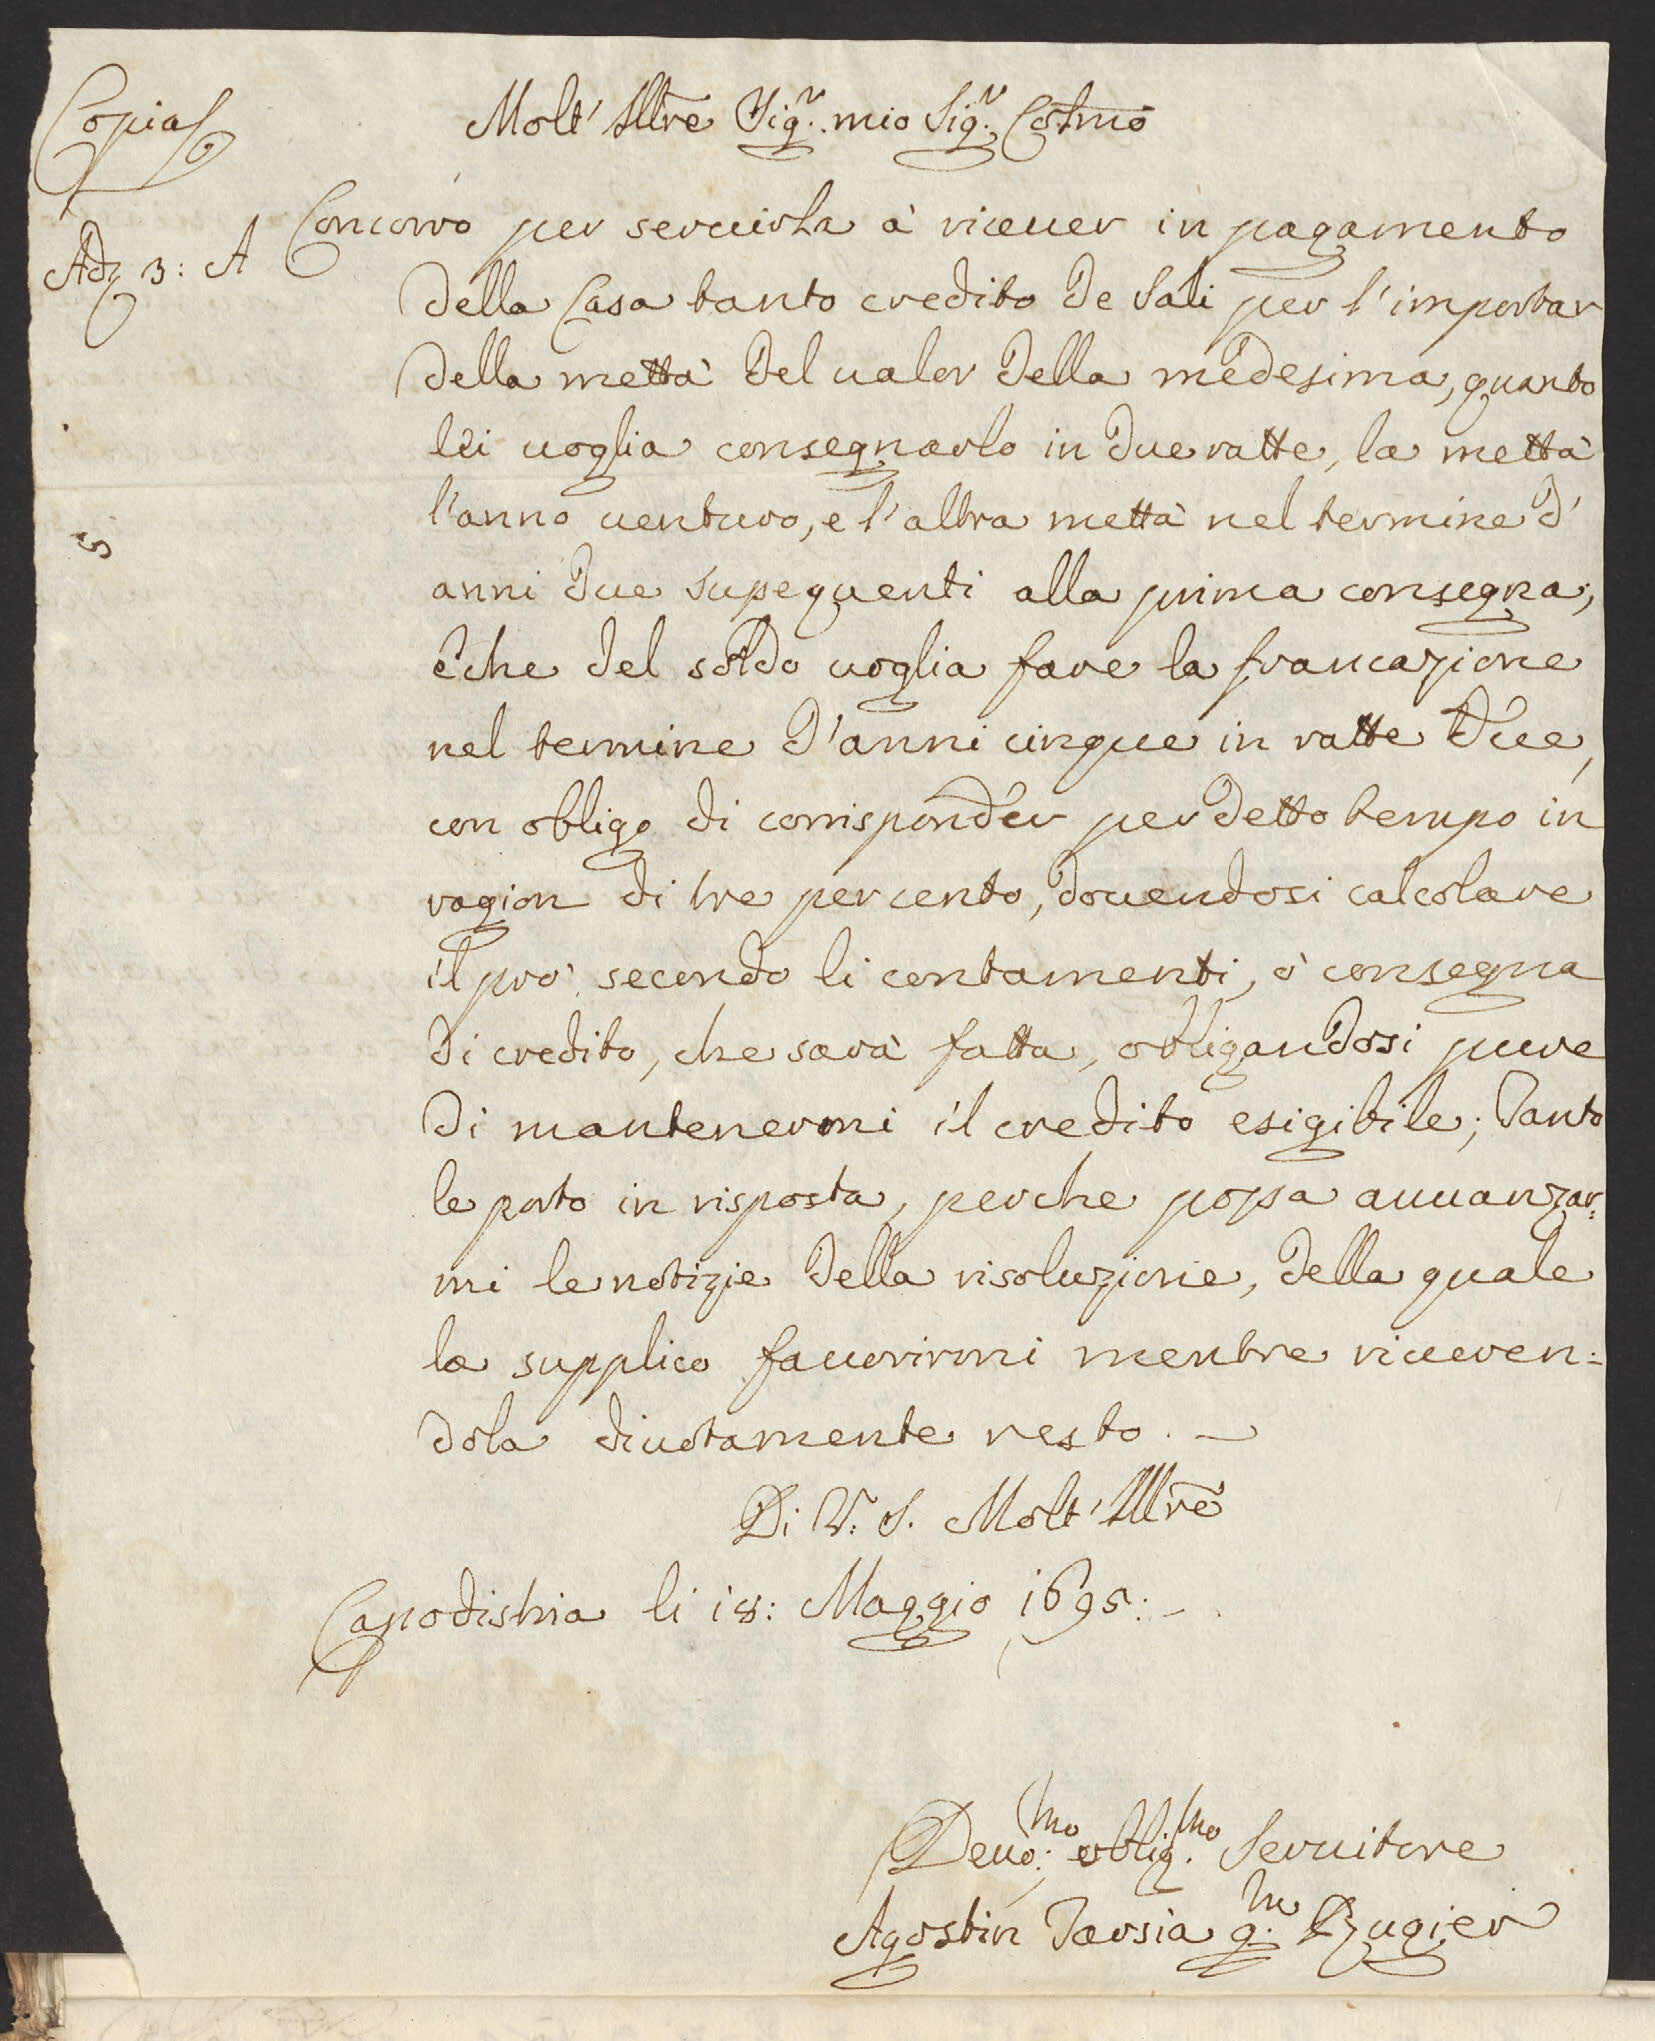 Copia
Molt' Illre Sigr. mio Sigr. Cosmo
Adz 3: A
Concorro per seruirla à riceuer in pagamento
della Casa tanto credito de Sali per l'importar
della mettà del ualor della medesima, quanto
lei uoglia consegnarlo in due ratte, la mettà
l'anno uenturo, e l'altra mettà nel termine d'
5
anni due susequenti alla prima consegna;
e che del soldo uoglia fare la francazione
nel termine d'anni cinque in ratte due,
con obligo di corrisponder per detto tempo in
ragion di tre per cento, douendosi calcolare
il prò secondo li contamenti, ò consegna
di credito, che sarà fatta, obligandosi pure
di mantenermi il credito esigibile; Tanto
le porto in risposta, perche possa auuanzar=
mi le notizie della risoluzione, della quale
la supplico fauorirmi mentre riueren=
dola diuotamente resto. —
Di V. S. Molt' Illre
Capodistria li 18: Maggio 1695: –
Deuo:mo oblig.mo Seruitore
Agostin Tarsia q.m Rugier